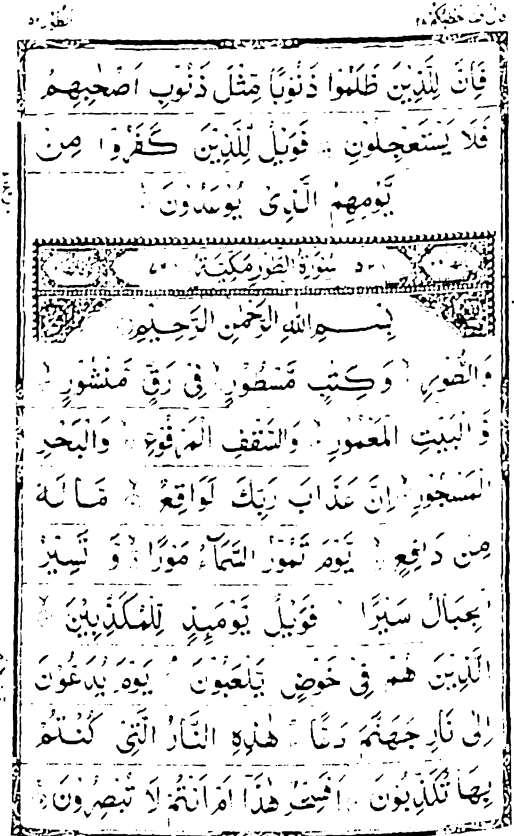 قال فما خطبكم ٢٧ الطور ٥٢
فَاِنَّ لِلَّذِيْنَ ظَلَمُوْا ذَنُوْبًا مِّثْلَ ذَنُوْبِ اَصْحٰبِهِمْ
فَلَا يَسْتَعْجِلُوْنِ فَوَيْلٌ لِّلَّذِيْنَ كَفَرُوْا مِنْ
يَّوْمِهِمُ الَّذِىْ يُوْعَدُوْنَ
سُوْرَةُ الطُّوْرِ مَكِّيَّةٌ
بِسْمِ اللهِ الرَّحْمٰنِ الرَّحِيْمِ
وَالطُّوْرِ وَكِتٰبٍ مَّسْطُوْرٍ فِىْ رَقٍّ مَّنْشُوْرٍ
وَّالْبَيْتِ الْمَعْمُوْرِ وَالسَّقْفِ الْمَرْفُوْعِ وَالْبَحْرِ
الْمَسْجُوْرِ اِنَّ عَذَابَ رَبِّكَ لَوَاقِعٌ مَّا لَهٗ
مِنْ دَافِعٍ يَّوْمَ تَمُوْرُ السَّمَآءُ مَوْرًا وَّ تَسِيْرُ
الْجِبَالُ سَيْرًا فَوَيْلٌ يَّوْمَئِذٍ لِّلْمُكَذِّبِيْنَ
الَّذِيْنَ هُمْ فِىْ خَوْضٍ يَّلْعَبُوْنَ يَوْمَ يُدَعُّوْنَ
اِلٰى نَارِ جَهَنَّمَ دَعًّا هٰذِهِ النَّارُ الَّتِىْ كُنْتُمْ
بِهَا تُكَذِّبُوْنَ اَفَسِحْرٌ هٰذَآ اَمْ اَنْتُمْ لَا تُبْصِرُوْنَ